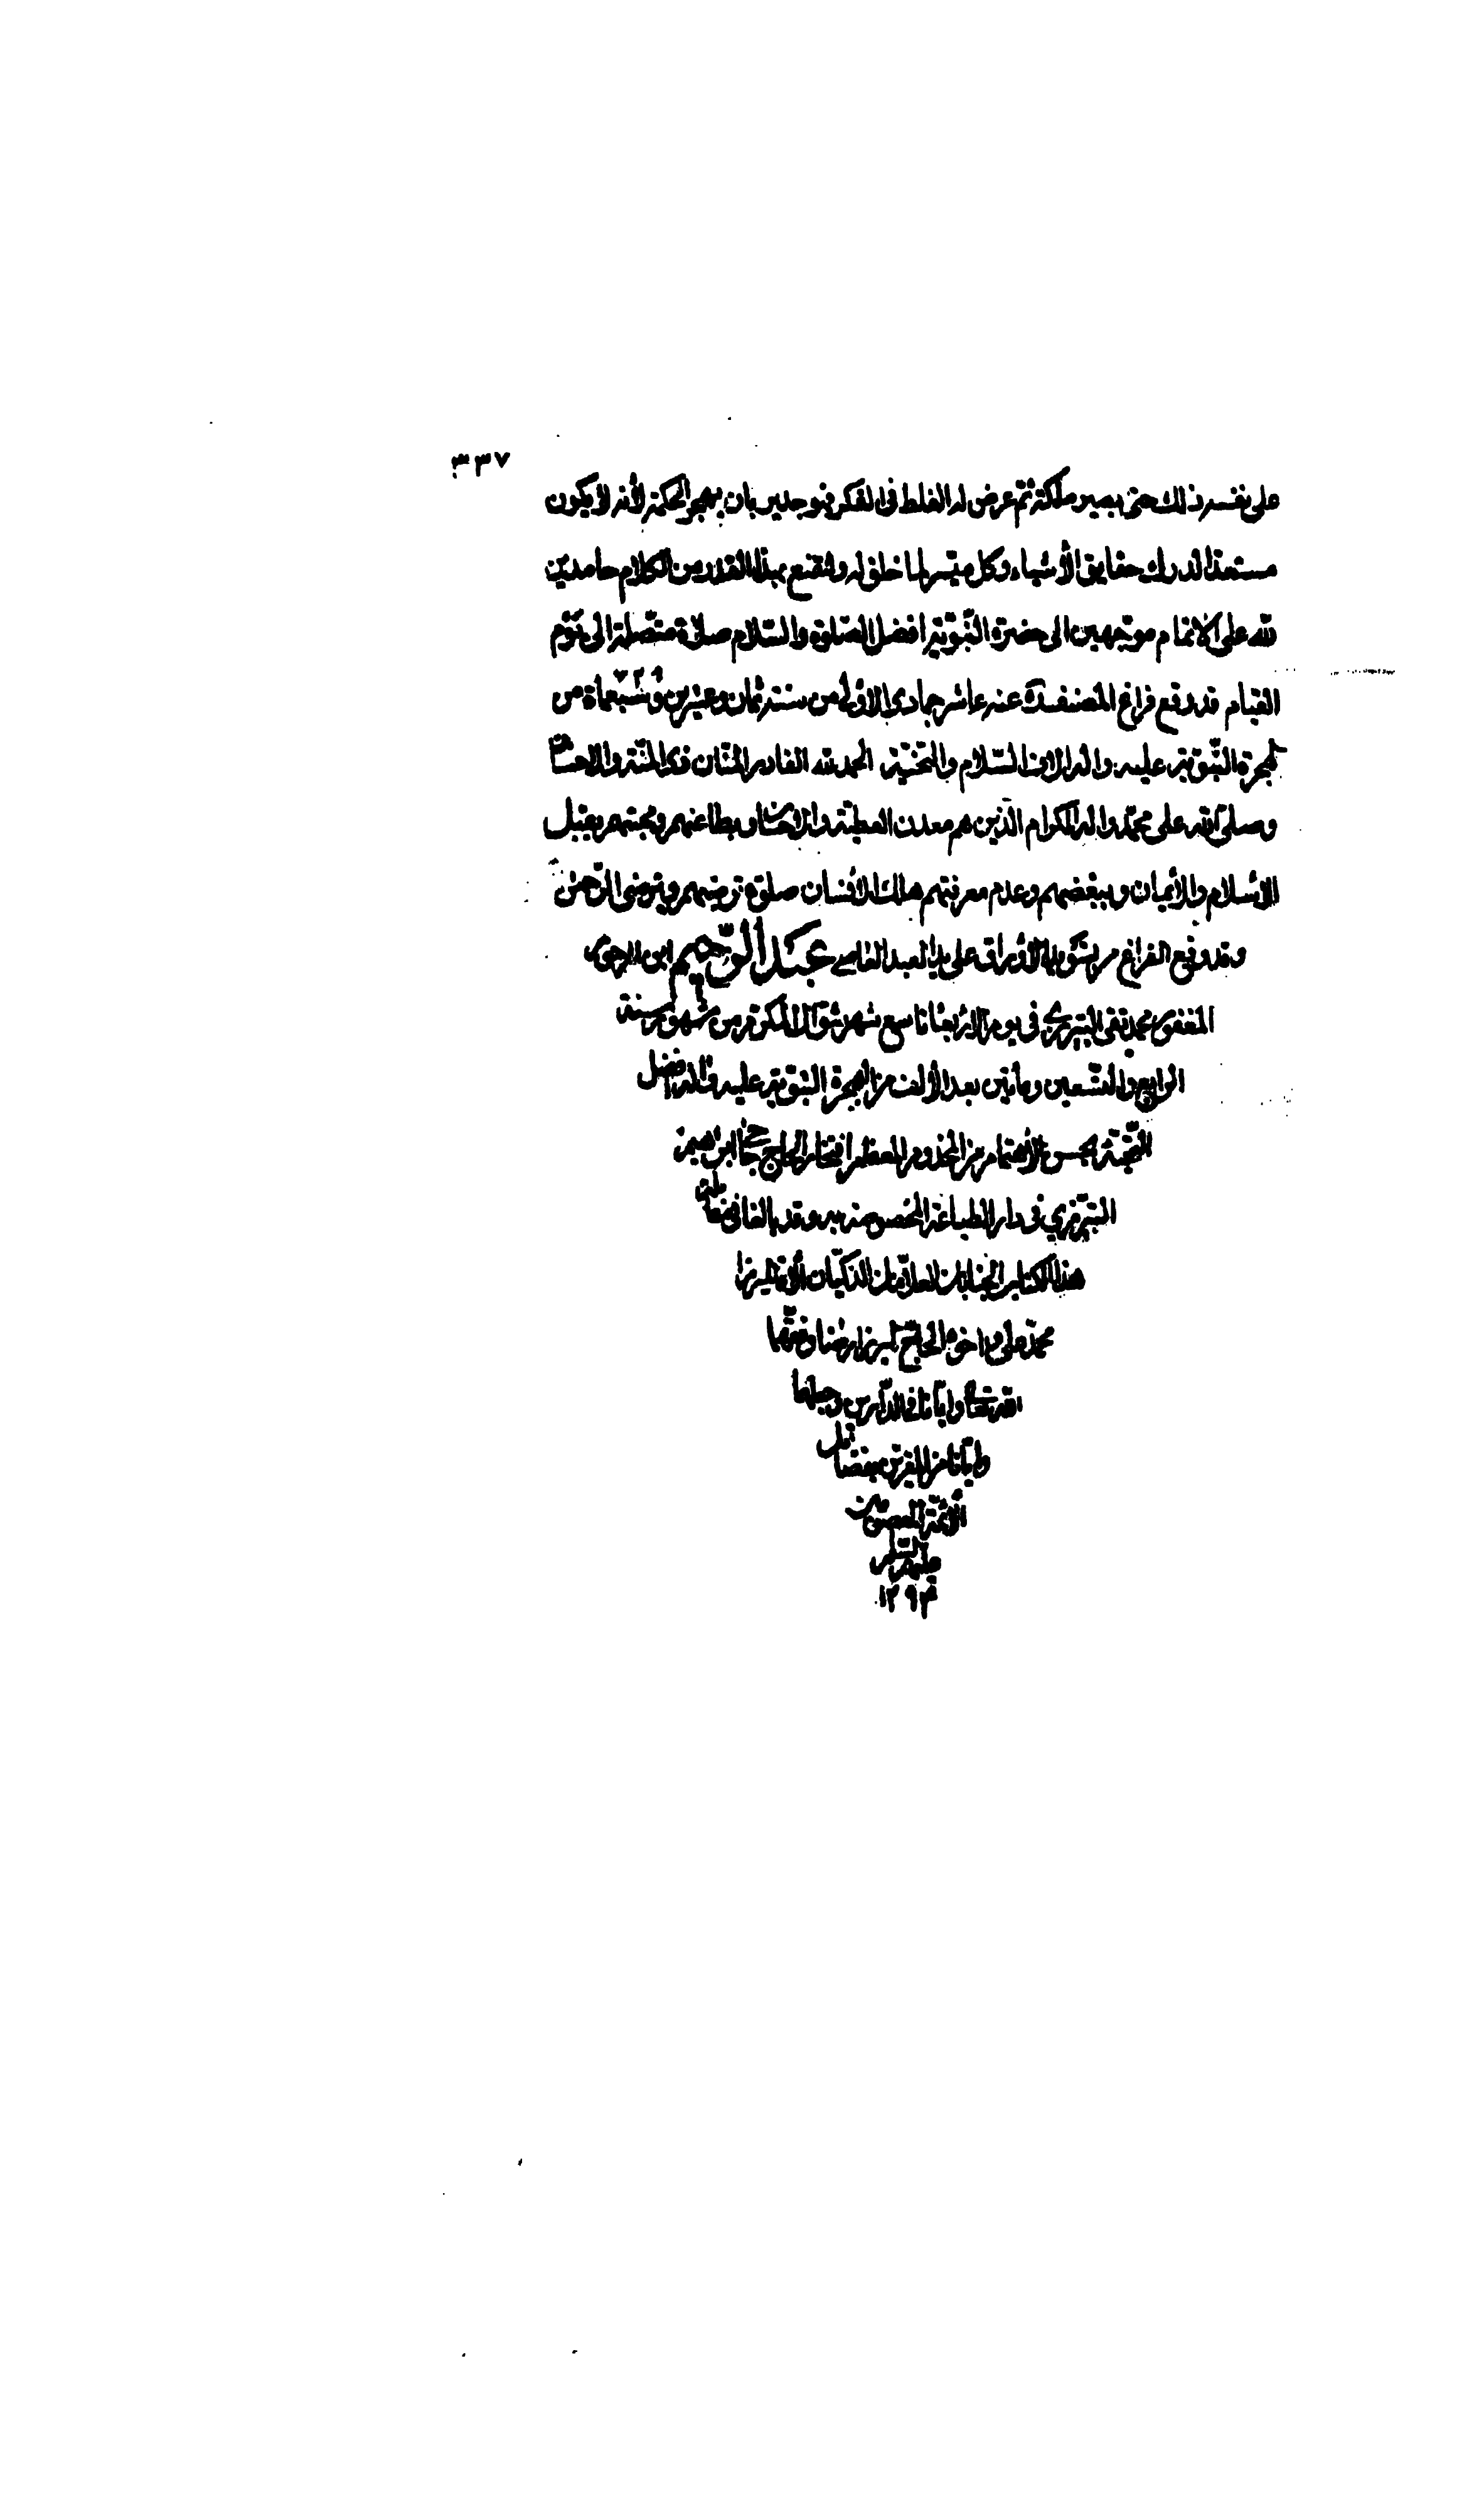 ٣٣٧
على نفسه ذلك حتى يصير ملكة ثم عرض له الغلط في الفكر فهو جدير بان يهجر الحكمة لأنه لا يكون
مستعدا لدرك حقايق الأشياء وكل ميسر لما خلق له ولنقنع بهذا القدر من الكلام حامدين
لله على الانمام موجهين الى حضرة النبوية افضل الصلوة والسلام صلاة متصلة الى يوم
القيام قد وقع فراغ المصنف عنه عاشر جمادى الاولى من سنة ثمان وعشرين وسبعمأة من
الهجرة النبوية عليه واله الاف السلام والتحية الحمد لله القادر المنان ذى المنة والاحسان
وصلى الله على محمد واله الكرام الذين هم معدن العطية والاحسان وبطاعتهم ومحبتهم يقبل
الاسلام والأيمان وببغضهم وعدم معرفتهم هلك الانسان صلوة ترضيهم وترضى الرحمن
وقد وقع الفراغ من تسويد الأوراق على يد العبد العاصي عبد الرحيم ابن المرحوم
المغفور محمد تقى التبريزى في يوم الاربعا تاسع شهر شوال المكرم من شهور سنة
الرابع والتسعين ومأتين بعد الألف من الهجرة النبوية عليه واله افضل
التحية حسب الأمر المخدوم المعظم افتخار الحاج
التبريزى في دار الطباعة المخصوصة به وقد بالغ فى مقابلة
هذا الكتاب
محمد على واخوه الحاج ميرزا رضا وفقهما
الله تعالى وايانا في الدارين وجعلهما
وايانا من الفائزين بفضل
الائمة المعصومين
عليهم السلام
١٢٩٤